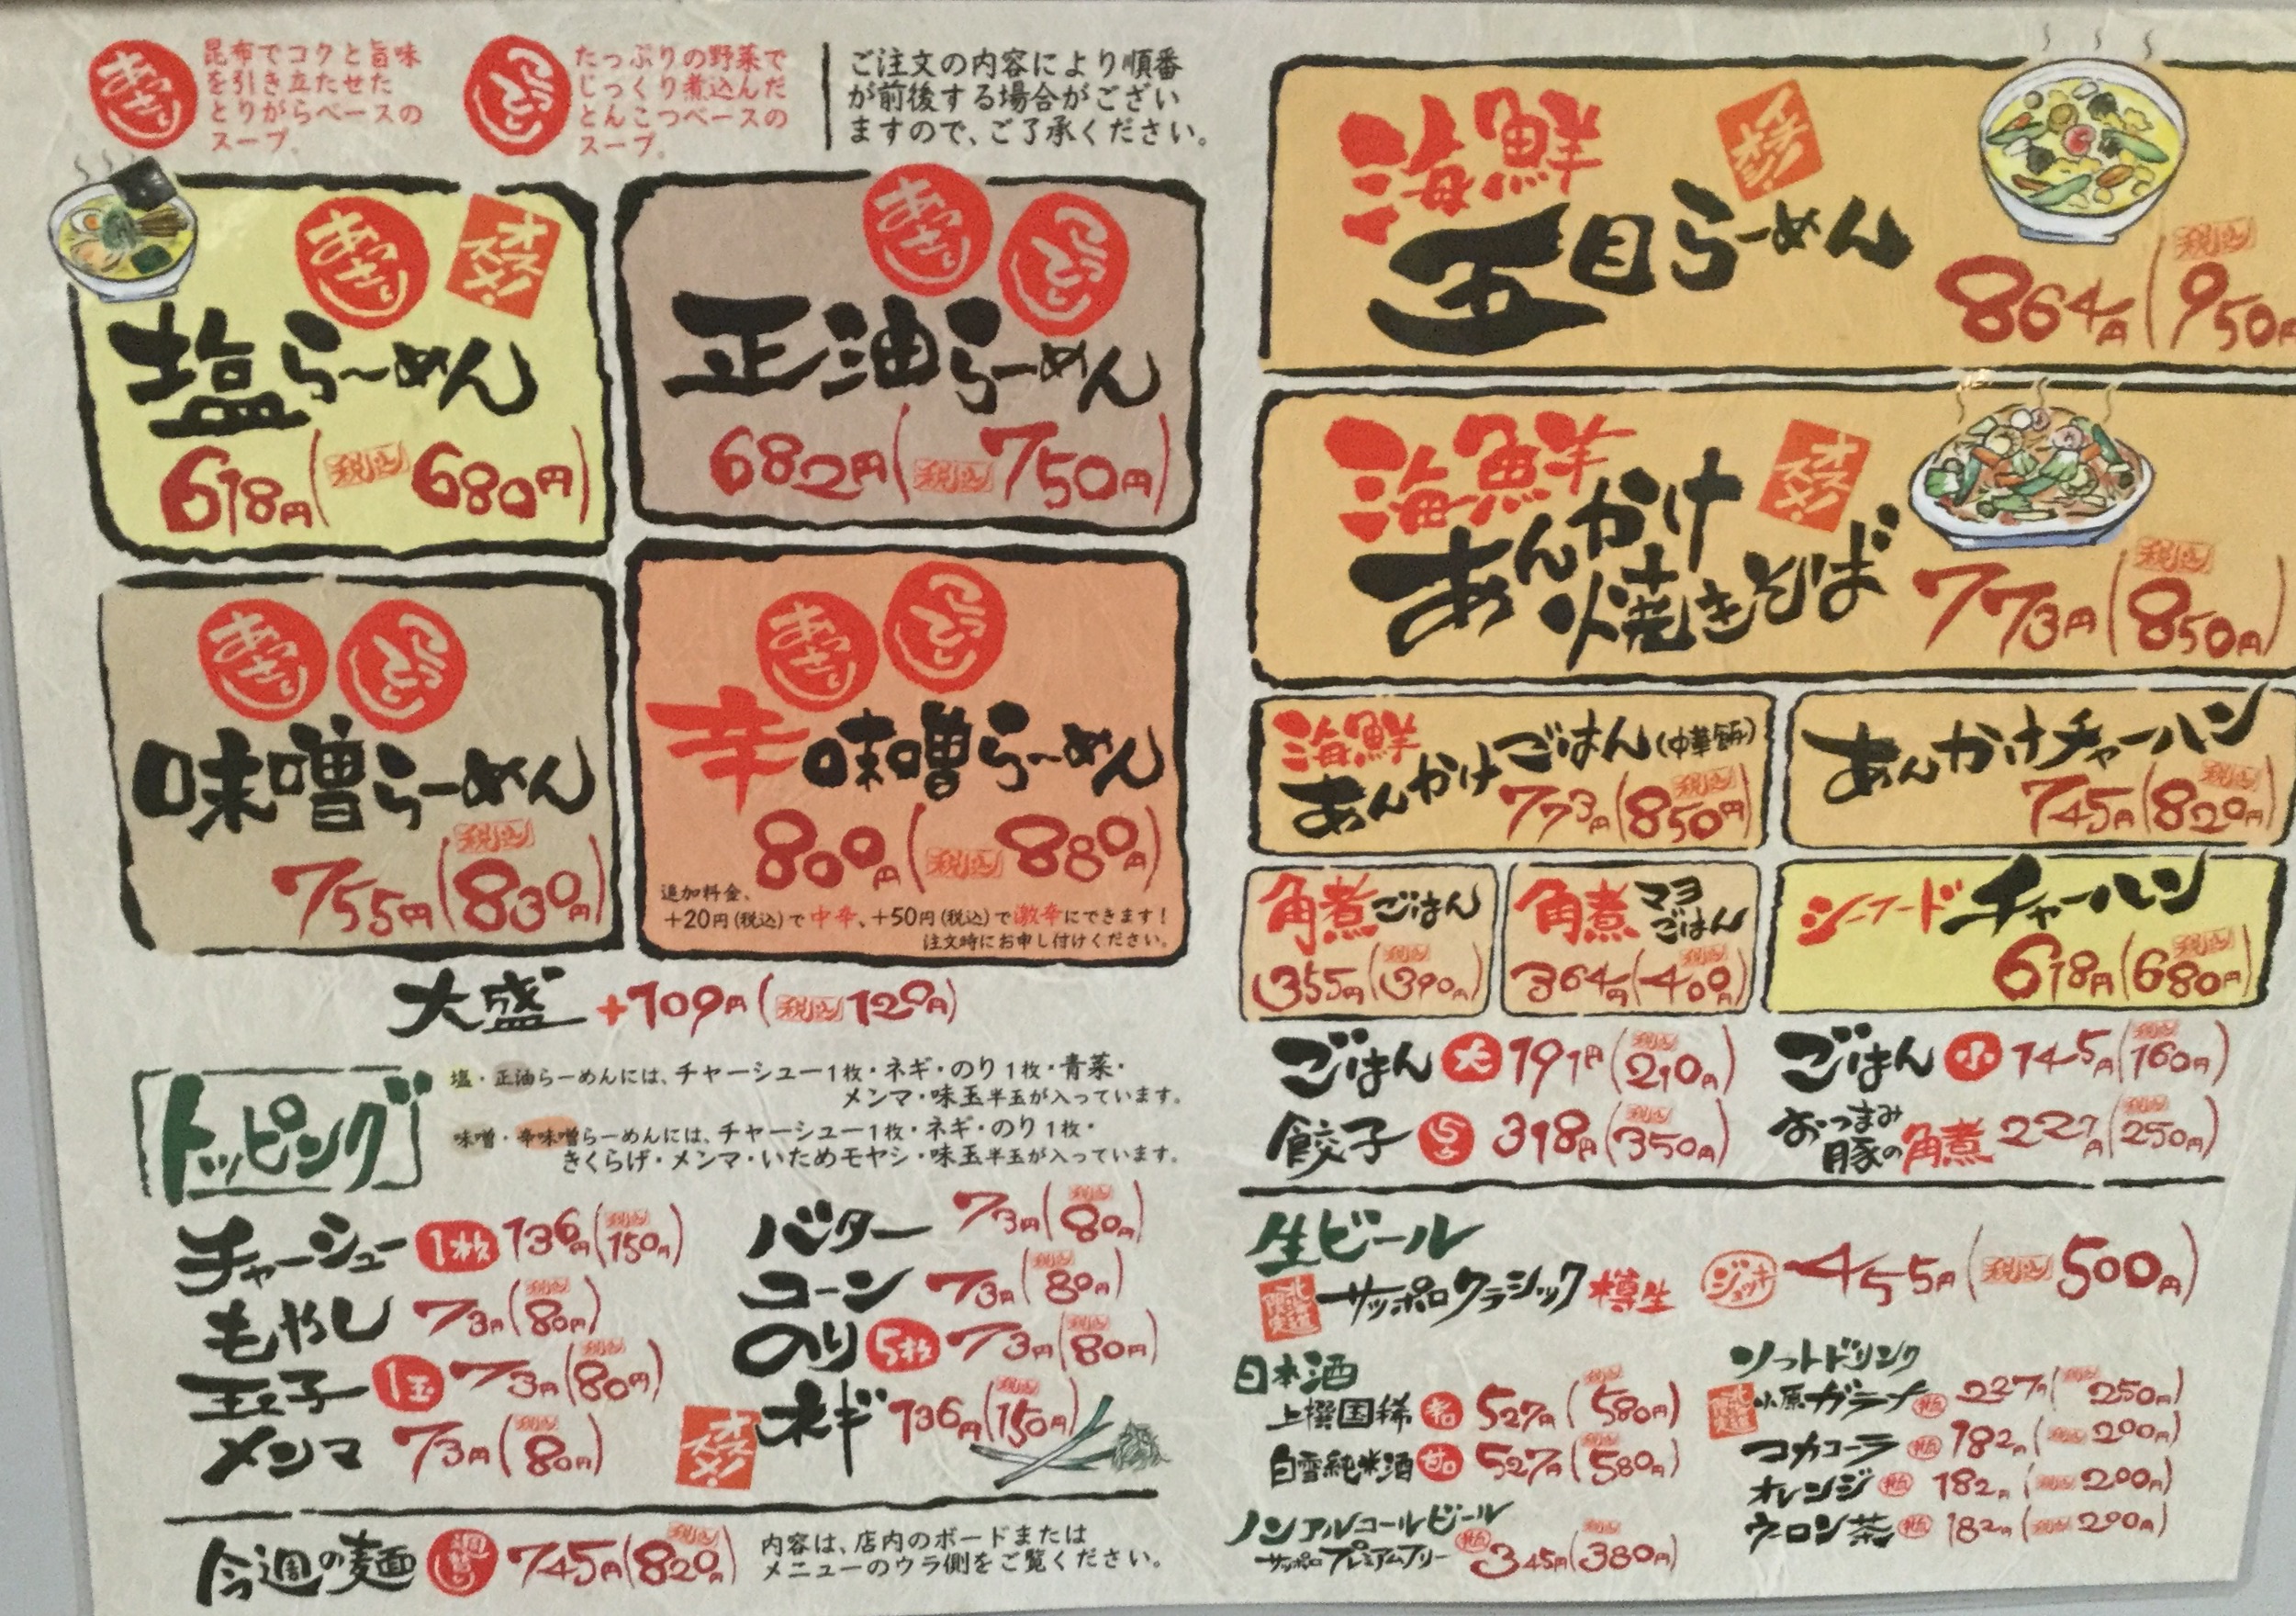 あっさり
昆布でコクと旨味
を引き立たせた
とりがらベースの
スープ。
こってり
たっぷりの野菜で
じっくり煮込んだ
とんこつベースの
スープ。
ご注文の内容により順番
が前後する場合がござい
ますので、ご了承ください。
あっさり
オススメ!
塩らーめん
618円(税込680円)
あっさり
こってり
正油らーめん
682円(税込750円)
あっさり
こってり
味噌らーめん
755円(税込830円)
あっさり
こってり
辛味噌らーめん
800円(税込880円)
追加料金、
+20円(税込)で中辛、+50円(税込)で激辛にできます!
注文時にお申し付けください。
大盛+109円(税込120円)
トッピング
塩・正油らーめんには、チャーシュー1枚・ネギ・のり1枚・青菜・
メンマ・味玉半玉が入っています。
味噌・辛味噌らーめんには、チャーシュー1枚・ネギ・のり1枚・
きくらげ・メンマ・いためモヤシ・味玉半玉が入っています。
チャーシュー 1枚 136円(税込150円)
もやし 73円(税込80円)
玉子 1玉 73円(税込80円)
メンマ 73円(税込80円)
バター 73円(税込80円)
コーン 73円(税込80円)
のり 5枚 73円(税込80円)
オススメ!
ネギ 136円(税込150円)
今週の麺 週替り 745円(税込820円)
内容は、店内のボードまたは
メニューのウラ側をご覧ください。
海鮮
五目らーめん
864円(税込950円
海鮮
オススメ!
あんかけ
焼きそば
773円(税込850円)
海鮮
あんかけごはん(中華飯)
773円(税込850円)
あんかけチャーハン
745円(税込820円)
角煮ごはん
355円(税込390円)
角煮マヨ
ごはん
364円(税込400円)
シーフードチャーハン
618円(税込680円)
ごはん 大 191円(税込210円)
ごはん 小 145円(税込160円)
餃子 5コ 318円(税込350円)
おつまみ
豚の角煮 227円(税込250円)
生ビール
北海道限定 サッポロクラシック 樽生 ジョッキ 455円(税込500円)
日本酒
上撰国稀 527円(税込580円)
白雪純米酒 527円(税込580円)
ノンアルコールビール
サッポロプレミアムフリー 345円(税込380円)
ソフトドリンク
小原ガラナ 227円(税込250円)
コカコーラ 182円(税込200円)
オレンジ 182円(税込200円)
ウーロン茶 182円(税込200円)